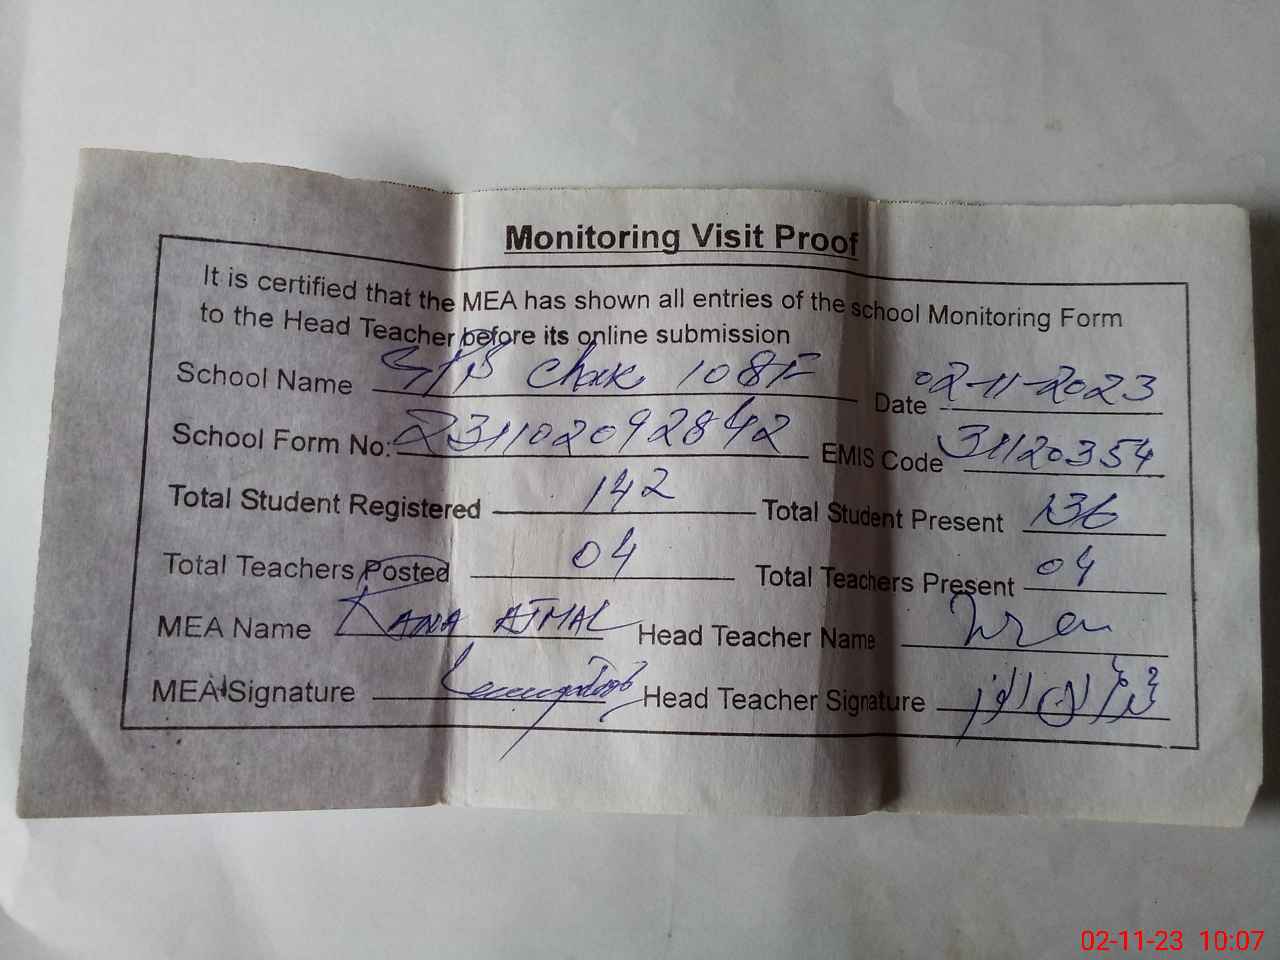 Monitoring Visit Proof
It is certified that the MEA has shown all entries of the school Monitoring Form
to the Head Teacher before its online submission
School Name Chak 108F Date 02-11-2023
School Form No: 231102092842 EMIS Code 31120354
Total Student Registered 142 Total Student Present 136
Total Teachers Posted 04 Total Teachers Present 04
MEA Name RANA AJMAL Head Teacher Name
MEA Signature Head Teacher Signature
02-11-23 10:07